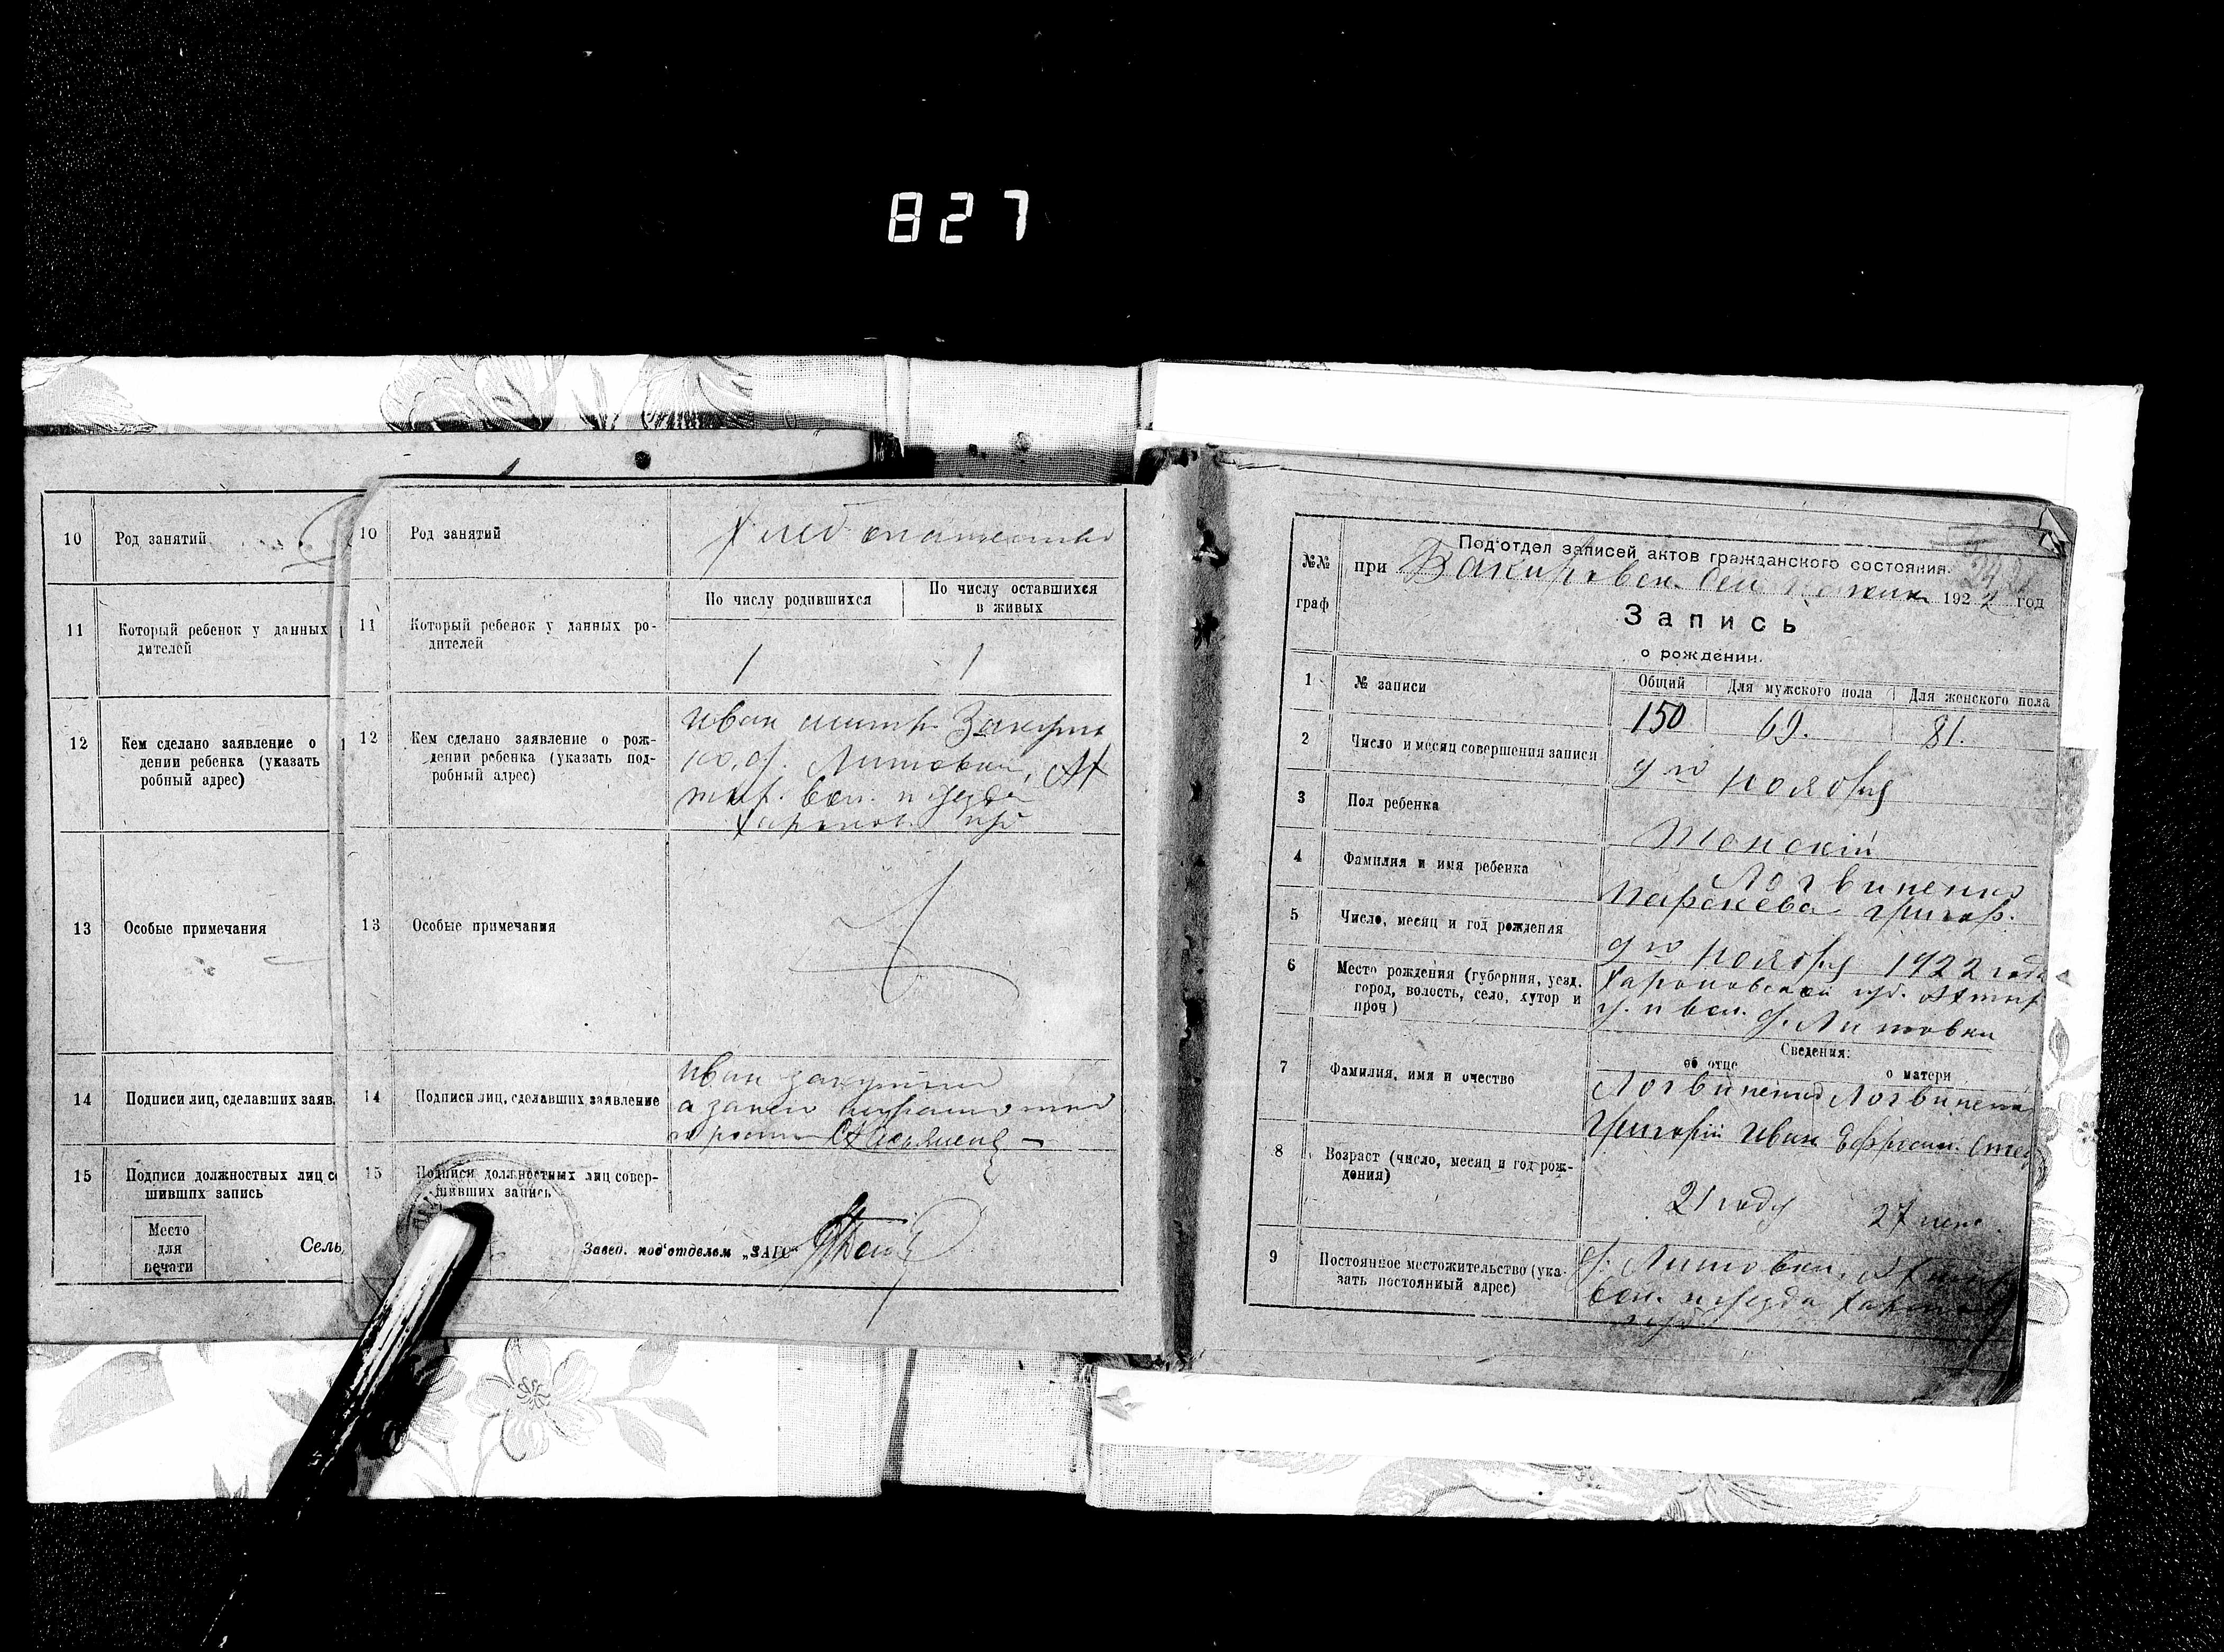 827
10 Род занятий
11 Который ребенок у данных
дителей
12 Кем сделано заявление о
дении ребенка (указать
робный адрес)
13 Особые примечания
14 Подписи лиц, сделавших заяв.
15 Подписи должностных лиц со
шивших запись
Место
для
печати
Сель
10 Род занятий
11 Который ребенок у данных ро-
дителей
По числу родившихся
По числу оставшихся
в живых
1 1
12 Кем сделано заявление о рож-
дении ребенка (указать под-
робный адрес)
Иван
Литовки, Ах
тыр. вол. и уезда
Харьков. губ
13 Особые примечания
14 Подписи лиц, сделавших заявление
Иван
15 Подписи должностных лиц совер-
шивших запись
Завед. под'отделом „ЗАГС"
№№
граф
Под'отдел записей актов гражданского состояния.
при Бакировск. 1922 год
Запись
о рождении.
1 № записи
Общий Для мужского пола Для женского пола
150 69. 81.
2 Число и месяц совершения записи
9 го ноября
3 Пол ребенка
Женский
4 Фамилия и имя ребенка
Логвиненко
Параскева Григор.
5 Число, месяц и год рождения
9 го ноября 1922 года
6 Место рождения (губерния, уезд,
город, волость, село, хутор и
проч)
Харьковской губ. Ахтыр
у. и вол. д. Литовки
Сведения:
об отце о матери
7 Фамилия, имя и очество
Логвиненко Логвиненко
Григорій Иван Ефросин.
8 Возраст (число, месяц и год рож-
дения)
21 году 27 лет
9 Постоянное местожительство (ука-
зать постоянный адрес)
д. Литовки, Ахтыр
вол. и уезда Харьков
губ.